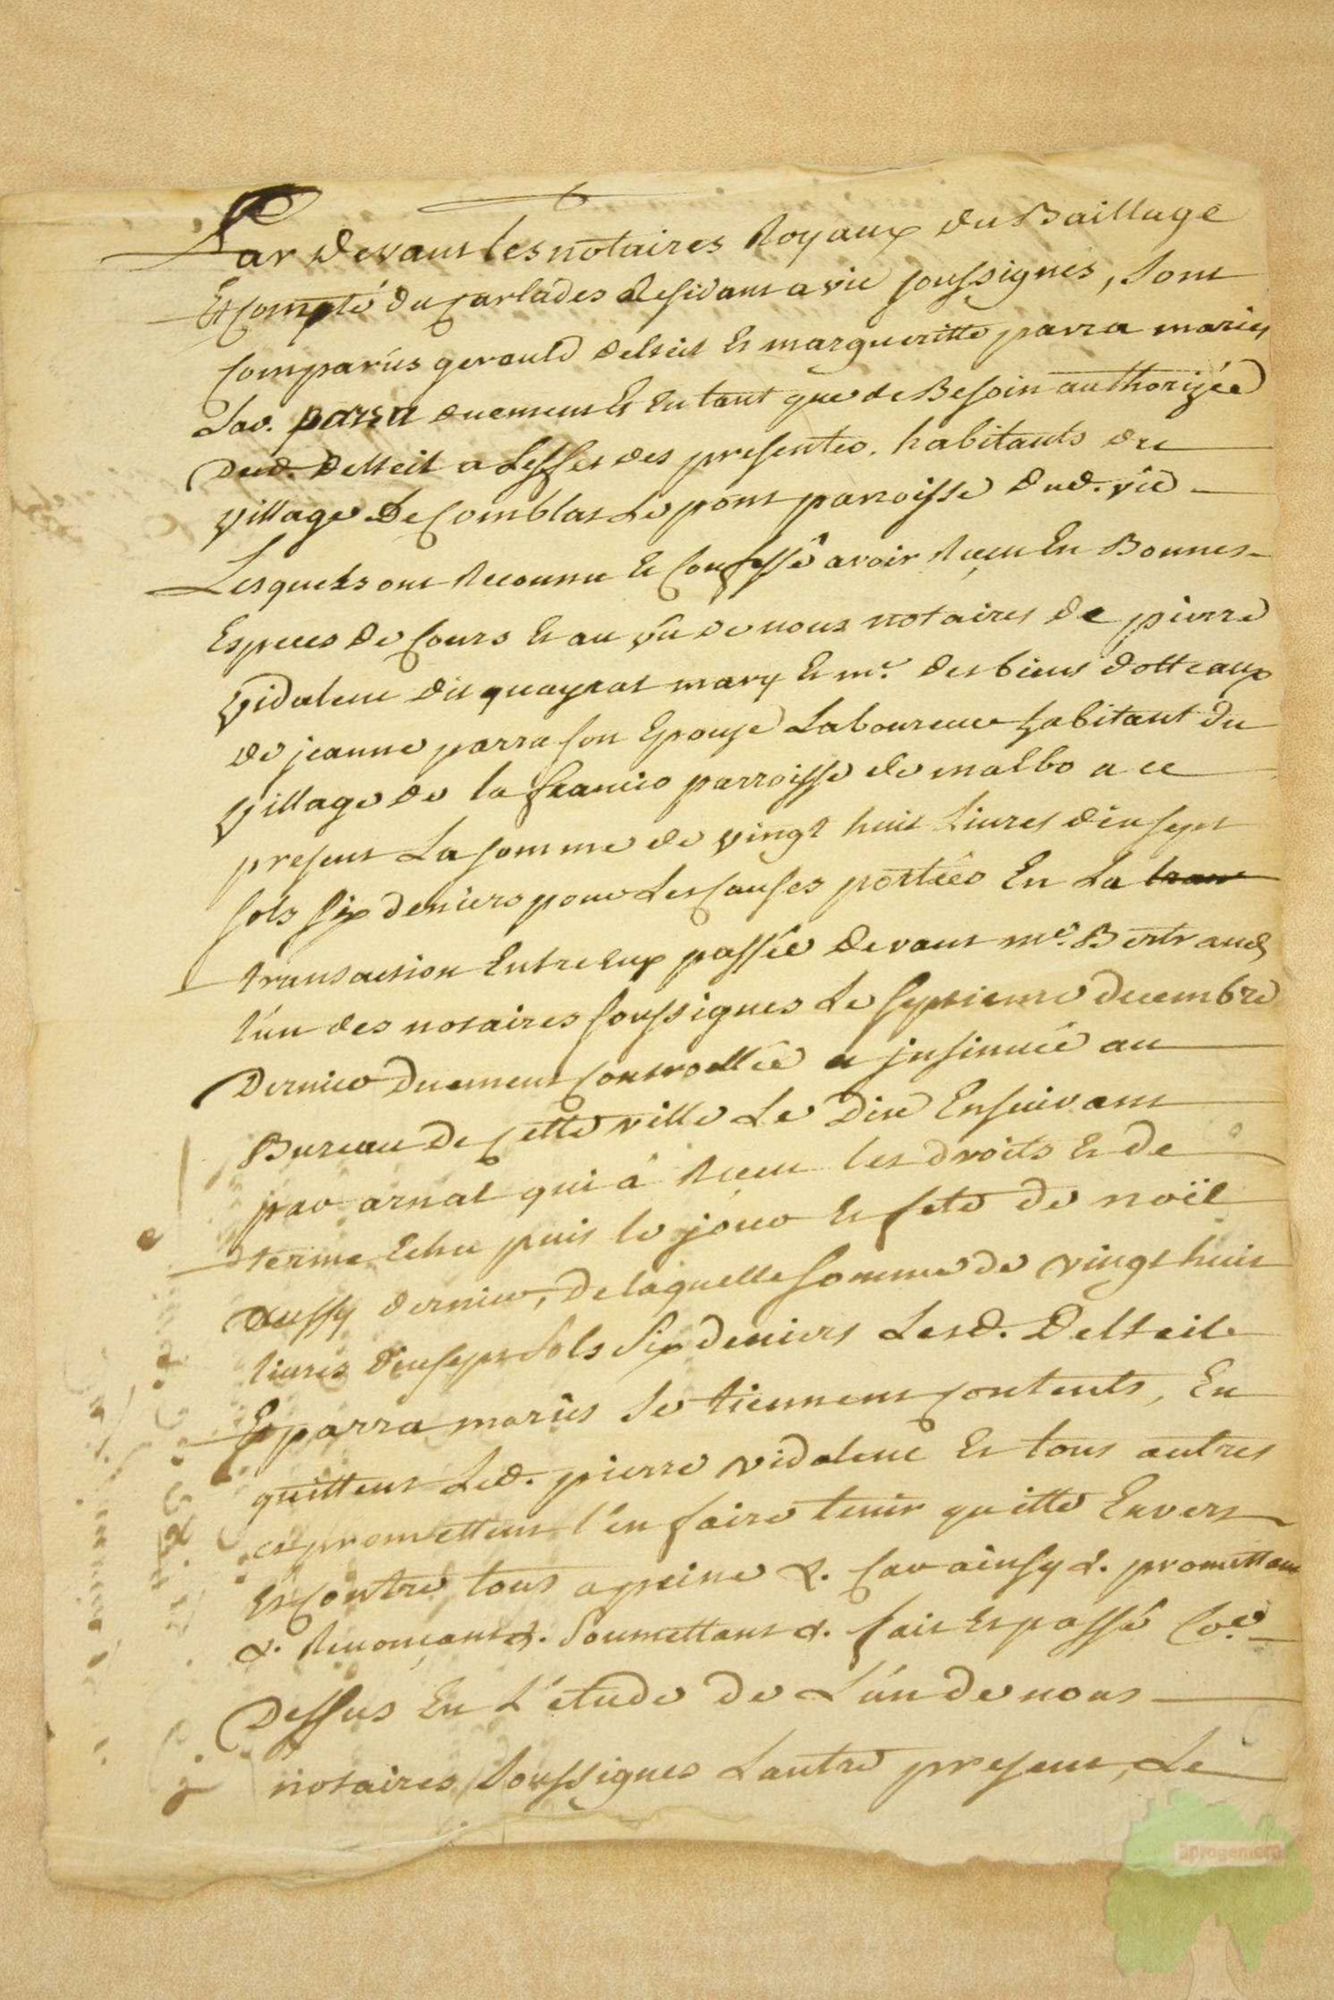 Par devant les notaires Royaux du Baillage
Et Compté du Carlades Residant a vic soussignés, sont
comparûs gerauld delteil et margueritte parra mariés
lad. parra duement et en tant que de Besoin authorizée
dud. delteil a Leffet des presentes. habitants du
village de Comblat Le pont parroisse dud. vic
Lesquels ont Reconnu et Confessé avoir Receu En Bonnes
Especes de Cours et au vû de nous notaires de pierre
vidalenc dit quayrat mary et me. des biens dotteaux
de jeanne parra son Epouse Laboureur habitant du
village de la francio parroisse de malbo a ce
present La somme de vingt huit Livres dix sept
sols six deniers pour Les Causes portées En La
transaction Entre eux passée devant me. Bertrand
l'un des notaires soussignes Le septieme decembre
Dernier duement Controllée et jnsinuée au
Bureau de Cette ville Le Dix Ensuivant
par arnal qui â Receu les droits et de
terme Echu puis le jour et fete de noël
aussy dernier, De laquelle somme de vingt huit
livres dix sept sols six deniers Lesd. Delteil
Et parra mariés se tiennent contents, En
quittent Led. pierre vidalenc et tous autres
et promettent l'en faire tenir quitte Envers
et Contre tous a peine &. Car ainsy &. promettant
&. Renonçant &. soumettant &. fait et passé Coe.
Dessus En L'etude de L'un de nous
notaires soussignes Lautre present, Le
aprogemere